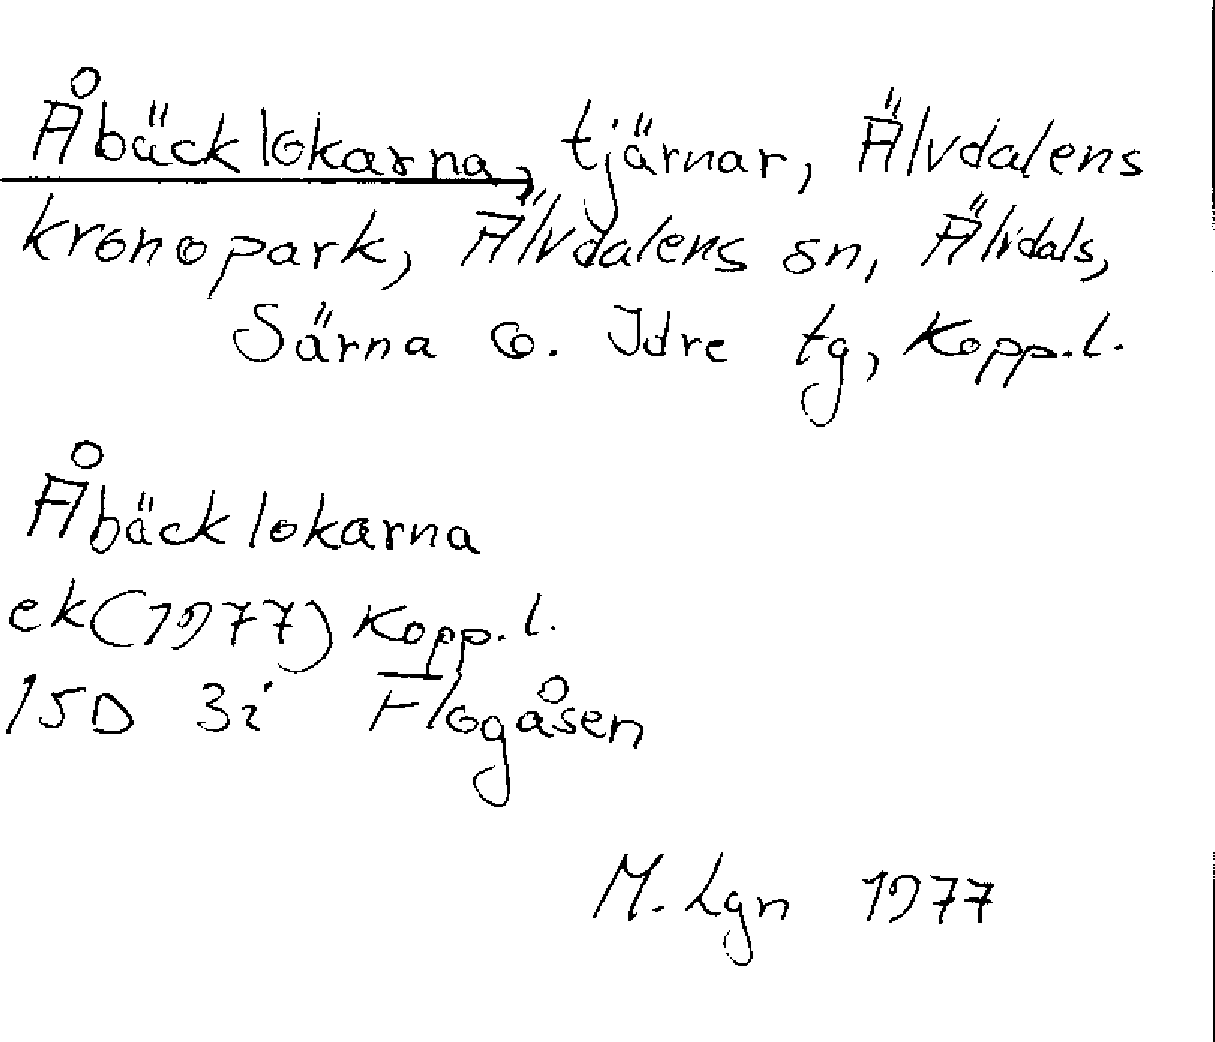 Åbäcklokarna, tjärnar, Älvdalens
kronopark, Älvdalens sn, Älvdals,
Särna o. Idre tg, Kopp.l.
Åbäcklokarna
ek (1977) Kopp.l.
15D 3i Flogåsen
M. Lgn 1977